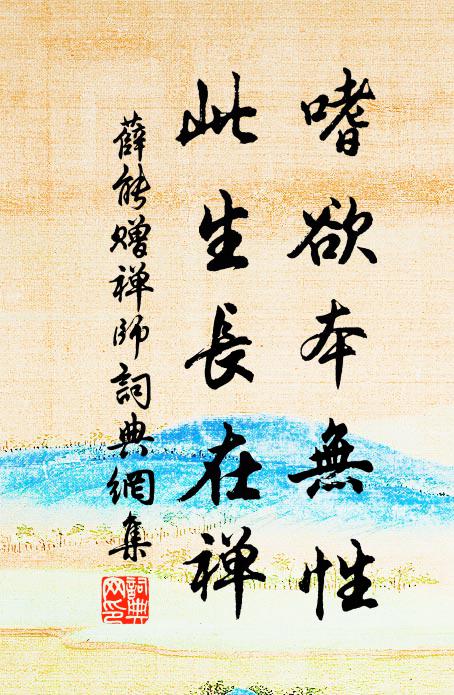 嗜欲本無性
此生長在禅
薛能赠禅师詞典網集
詞典